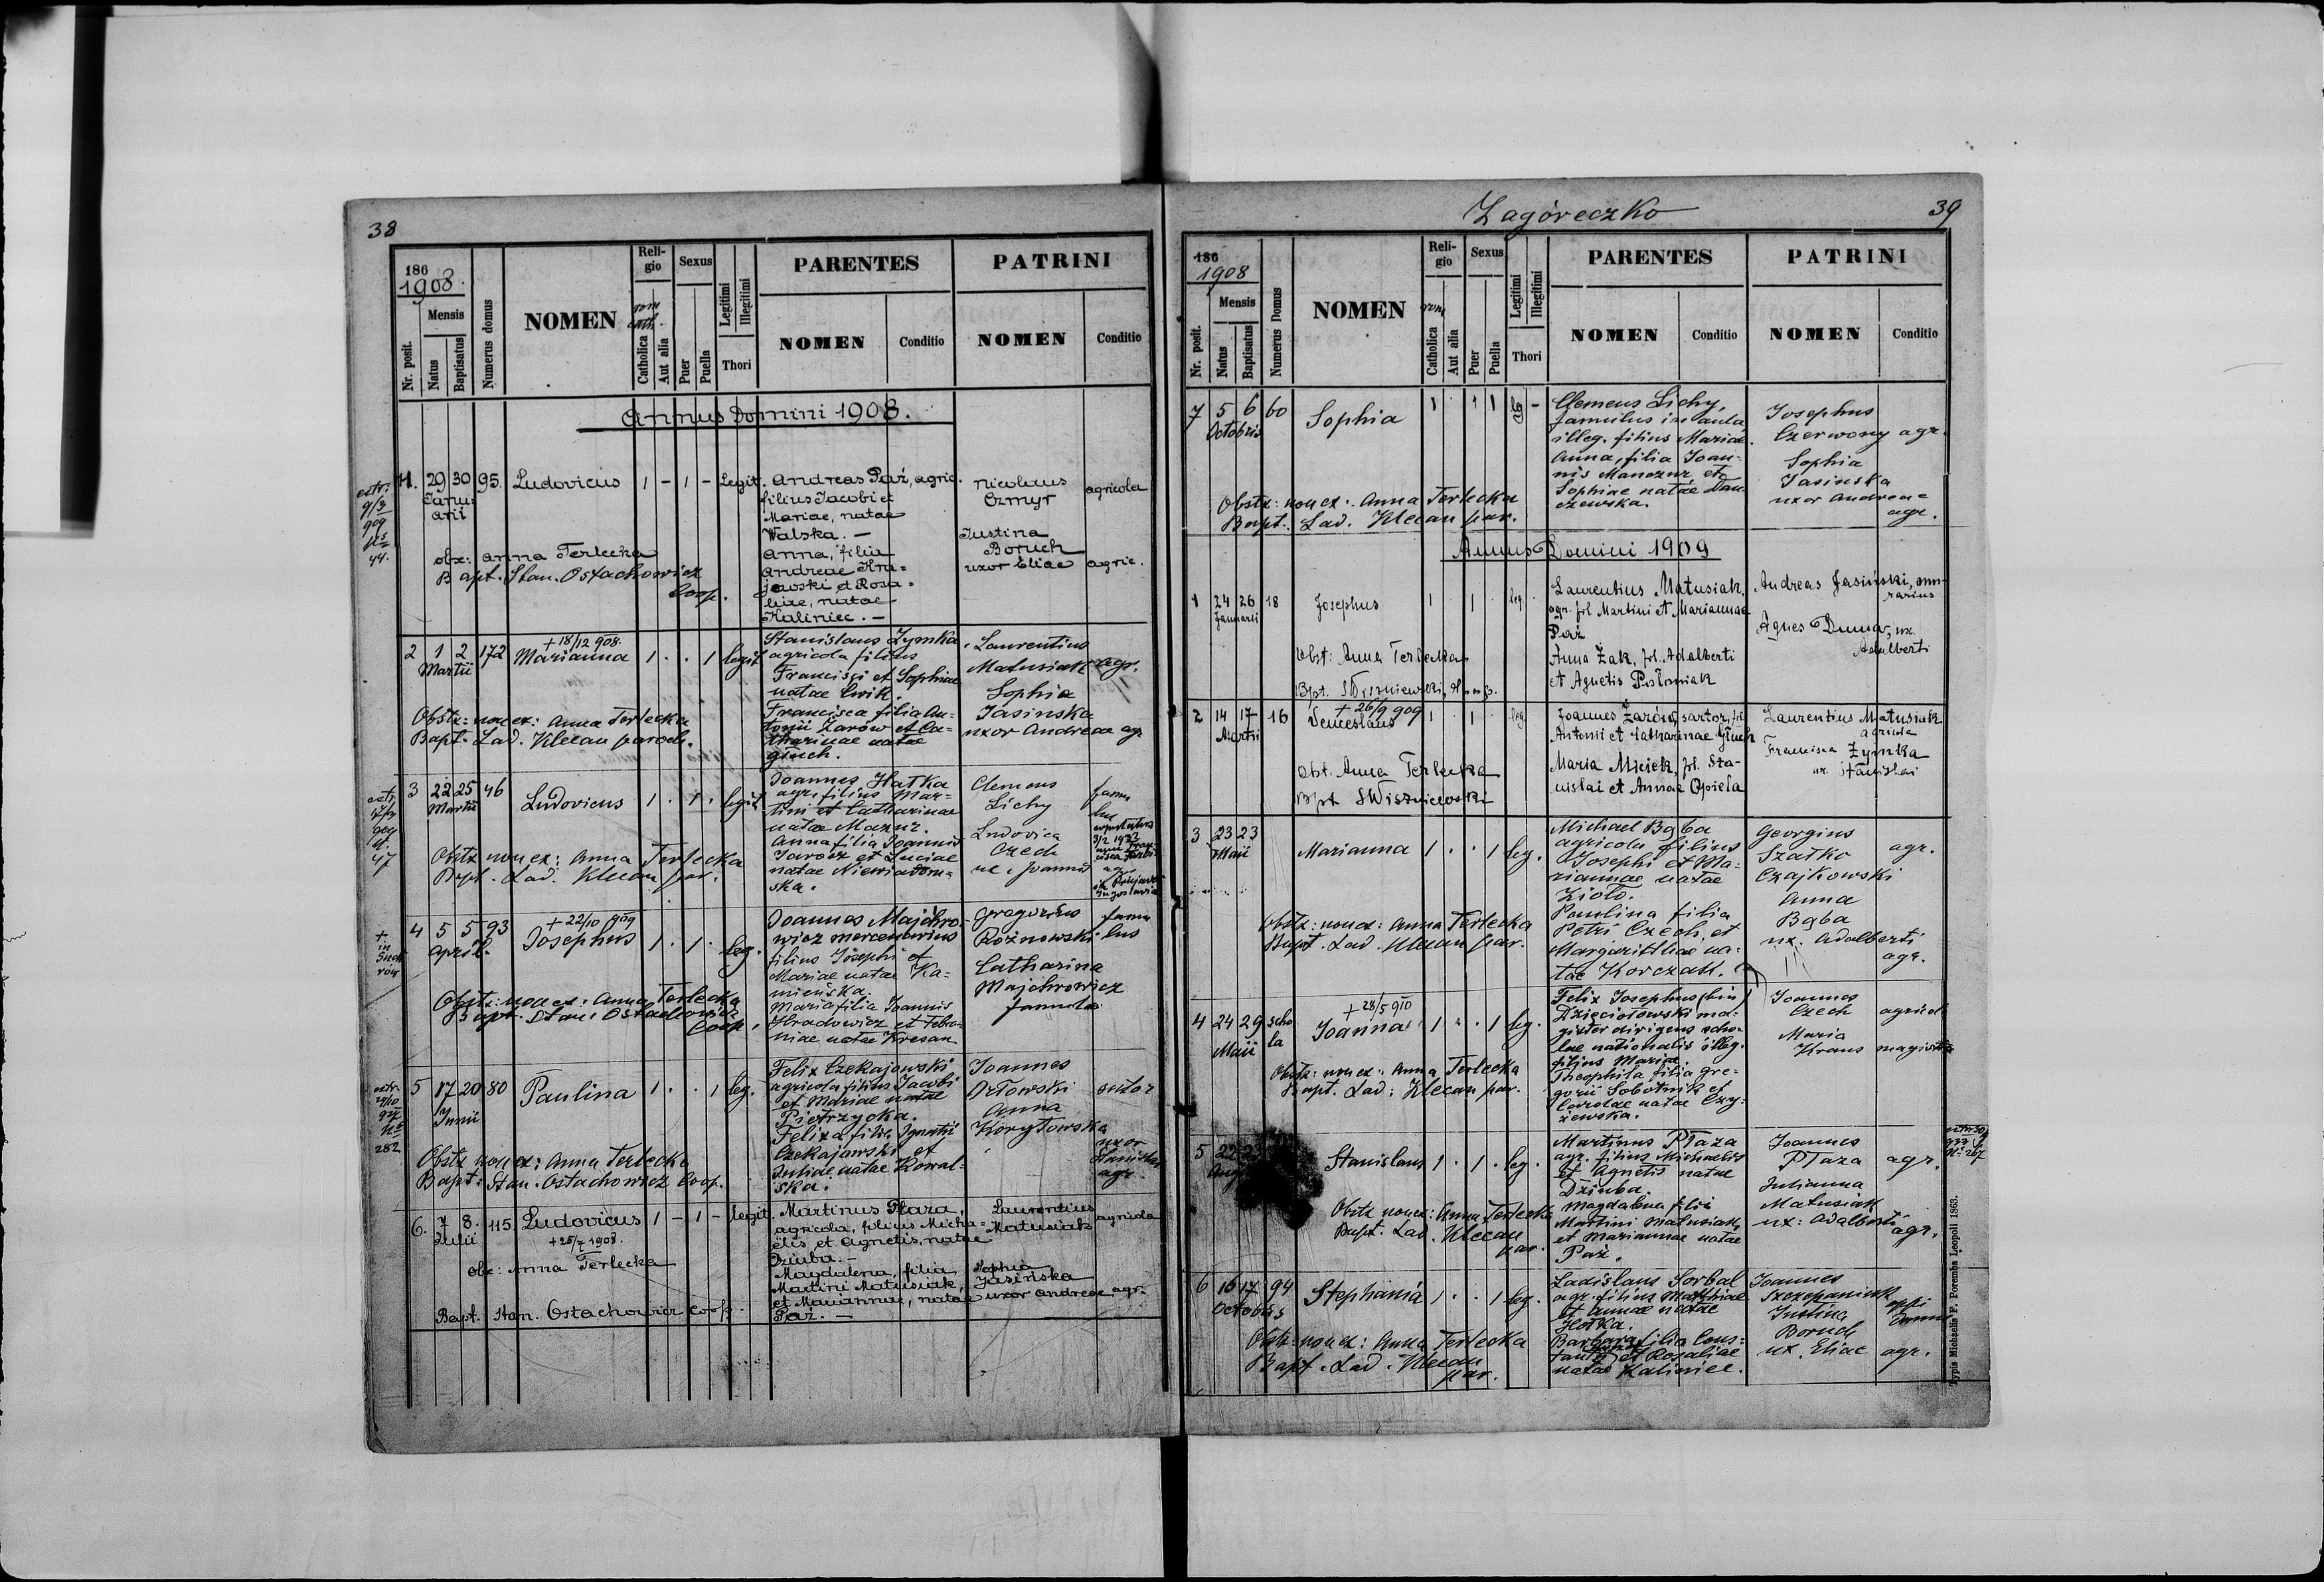 38
186
1908.
Nr. posit.
Mensis
Natus
Baptisatus
Numerus domus
NOMEN
Religio
rom. cath.
Catholica
Aut alia
Sexus
Puer
Puella
Legitimi
Illegitimi
Thori
PARENTES
NOMEN
Conditio
PATRINI
NOMEN
Conditio
Annus Domini 1908.
extr.
9/3
909
44.
1. 29 30 95. Ludovicus 1 - 1 - Legit.
Janu-
arii
Andreas Paź, agric.
filius Jacobi et
Mariae, natae
Walska. —
Anna, filia
Andreae Kru-
jewski et Rosa-
liae, natae
Kaliniec. —
Nicolaus
Czmyr
agricola
Justina
Boruch
uxor Eliae agric.
obx: Anna Terlecka
Bapt. Stan. Ostachowicz
Coop.
2 1 2 172 Marianna 1 . . 1 legit.
+ 18/12 908.
Martii
Stanislaus Zymka
agricola filius
Francisci et Sophiae
natae Cwik.
Francisca filia An-
tonii Zarów et Ca-
tharinae natae
Gluch.
Laurentius
Matusiak agr.
Sophia
Jasinska
uxor Andreae agr
Obstx: non ex: Anna Terlecka
Bapt. Lad. Klecan paroch.
47
3 22 25 46 Ludovicus 1 . 1 . legit
Martii
Joannes Hałka
agr. filius Mar-
tini et Catharinae
natae Mazur.
Anna filia Joannis
Jarosz et Luciae
natae Niewiadom-
ska.
Clemens
Lichy
famu
lus
Ludovica
Czech
ux. Joannis
Obstx non ex: Anna Terlecka
Bapt. Lad. Klecan par.
+
in
4 5 5 93 Josephus 1 . 1 . leg.
+ 22/10 909
April.
Joannes Majchro-
wicz mercenarius
filius Josephi et
Mariae natae Ka-
mieńska.
Maria filia Joannis
Hradowicz et Febro-
niae natae Kresan
Gregorius
Rożnowski
famu
lus
Catharina
Majchrowicz
famula
Obstx: non ex: Anna Terlecka
Bapt. Stan. Ostachowicz
Coop.
extr.
29/10
282
5 17 20 80 Paulina 1 . . 1 leg.
Junii
Felix Czekajowski
agricola filius Jacobi
et Mariae natae
Pietrzycka.
Felixa filia Ignatii
Czekajowski et
Juliae natae Kowal-
ska.
Joannes
Orłowski sutor
Anna
Korytowska
uxor
Stanislai
agr.
Obstx non ex: Anna Terlecka
Bapt: Stan. Ostachowicz Coop.
6. 7 8. 115. Ludovicus 1 - 1 - legit.
Julii
+ 25/7 1908.
Martinus Płaza,
agricola, filius Micha-
ëlis et Agnetis, natae
Dziuba. —
Magdalena, filia
Martini Matusiak,
et Mariannae, natae
Paź. —
Laurentius
Matusiak agricola
Sophia
Jasińska
uxor Andreae agr.
obx: Anna Terlecka
Bapt. Stan. Ostachowicz coop.
Zagóreczko
39
186
1908
Nr. posit.
Mensis
Natus
Baptisatus
Numerus Domus
NOMEN
Religio
rom
Catholica
Aut alia
Sexus
Puer
Puella
Legitimi
Illegitimi
Thori
PARENTES
NOMEN
Conditio
PATRINI
NOMEN
Conditio
7 5 6 60 Sophia 1 . 1 1 leg -
Octobris
Clemens Lichy,
famulus in aula,
illeg. filius Mariae.
Anna, filia Joan-
nis Manozur et
Sophiae natae Dan-
czewska.
Josephus
Czerwony agr.
Sophia
Jasinska
uxor Andreae
agr.
Obstx: non ex: Anna Terlecka
Bapt. Lad. Klecan par.
Annus Domini 1909
1 24 26 18 Josephus 1 . 1 . leg.
Januarii
Laurentius Matusiak,
agr. fil Martini et Mariannae
Paź
Anna Żak, fil. Adalberti
et Agnetis Postawiak
Andreas Jasiński, mu-
rarius
Agnes Duma, ux.
Adalberti
Obst: Anna Terlecka
Bpt. SWiszniewski, coop.
2 14 17 16 Venceslaus 1 . 1 . leg.
+ 26/9 909
Martii
Joannes Żarów, sartor, fil.
Antonii et Catharinae Gluch
Maria Miciek, fil. Sta-
nislai et Annae Opiela
Laurentius Matusiak
agricola
Francisca Zymka
ux. Stanislai
Obst. Anna Terlecka
Bpt SWiszniewski
3 23 23 Marianna 1 . . 1 leg.
Maii
Michael Bąba
agricola filius
Josephi et Ma-
riannae natae
Zioło.
Paulina filia
Petri Czech et
Margarithae na-
tae Korczak.
Georgius
Szałko agr.
Czajkowski
Anna
Bąba
ux. Adalberti
agr.
Obstx: non ex: Anna Terlecka
Bapt. Lad. Klecan par.
4 24 29 scho
la
Joanna 1 . . 1 leg.
+ 28/5 910
Maii
Felix Josephus (bin)
Dzieciołowski ma-
gister dirigens scho-
lae nationalis illeg.
filius Mariae.
Theophila filia Gre-
gorii Sobotnik et
Carolae natae Czy-
żewska.
Joannes
Czech agricola
Maria
Kraus magistra
Obstx: non ex: Anna Terlecka
Bapt. Lad: Klecan par.
5 22 23 Stanislaus 1 . 1 . leg.
Aug
Martinus Płaza
agr. filius Michaelis
et Agnetis natae
Dziuba
Magdalena filia
Martini Matusiak
et Mariannae natae
Paź.
Joannes
Płaza agr.
Julianna
Matusiak
ux: Adalberti
agr.
Obstx non ex: Anna Terlecka
Bapt. Lad. Klecan
par.
6 16 17 94 Stephania 1 . . 1 leg.
Octobris
Ladislaus Sorbal
agr. filius Matthiae
et Annae natae
Hołka.
Barbara filia Cons-
tantini et Rosaliae
natae Kaliniec.
Joannes
Szczepaniuk
Justina
Boruch
ux. Eliae agr.
Obstx: non ex: Anna Terlecka
Bapt. Lad. Klecan
par.
Typis Michaelis F. Poremba Leopoli 1863.